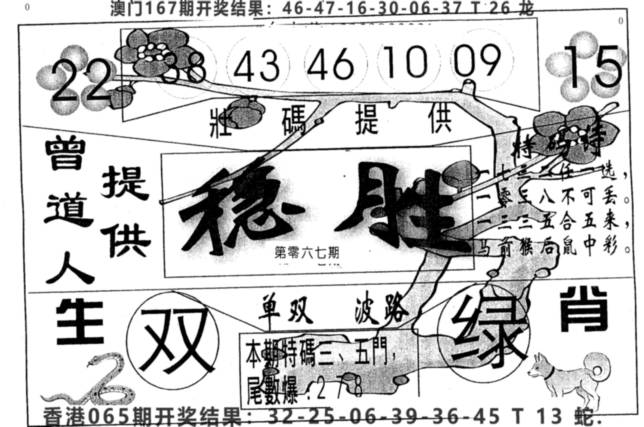 澳门167期开奖结果：46-47-16-30-06-37 T 26 龙
22 38 43 46 10 09 15
壯 碼 提 供
曾道人
提供
稳胜
第零六七期
特碼詩
一七三八任一选，
一零三八不可丢。
一二三五合五来，
马前猴后鼠中彩。
生 肖
单双 波路
双 绿
本期特碼三、五門，
尾數爆:2 7 8
香港065期开奖结果：32-25-06-39-36-45 T 13 蛇.